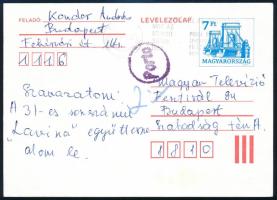 FELADÓ: Kondor András
Budapest
Fehérvári út
1116
LEVELEZŐLAP
7 Ft
MAGYARORSZÁG
Porto
Szavazatom:
A 31-es sorszámú
"Lavina" együttesre
adom le.
Magyar Televízió
Fesztivál 84
Budapest
Szabadság tér
1810